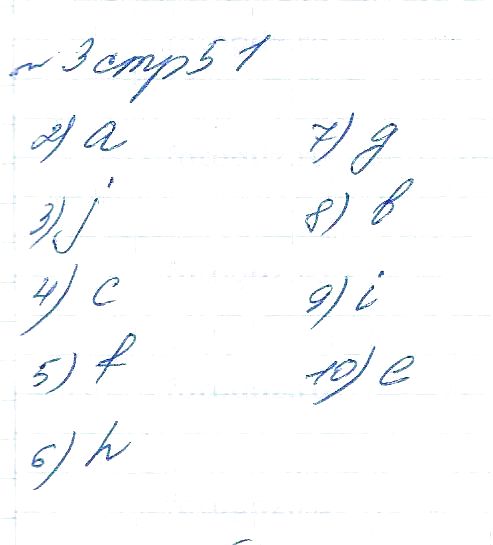 ~ 3 стр 51
2) a
3) j
4) c
5) f
6) h
7) g
8) b
9) i
10) e